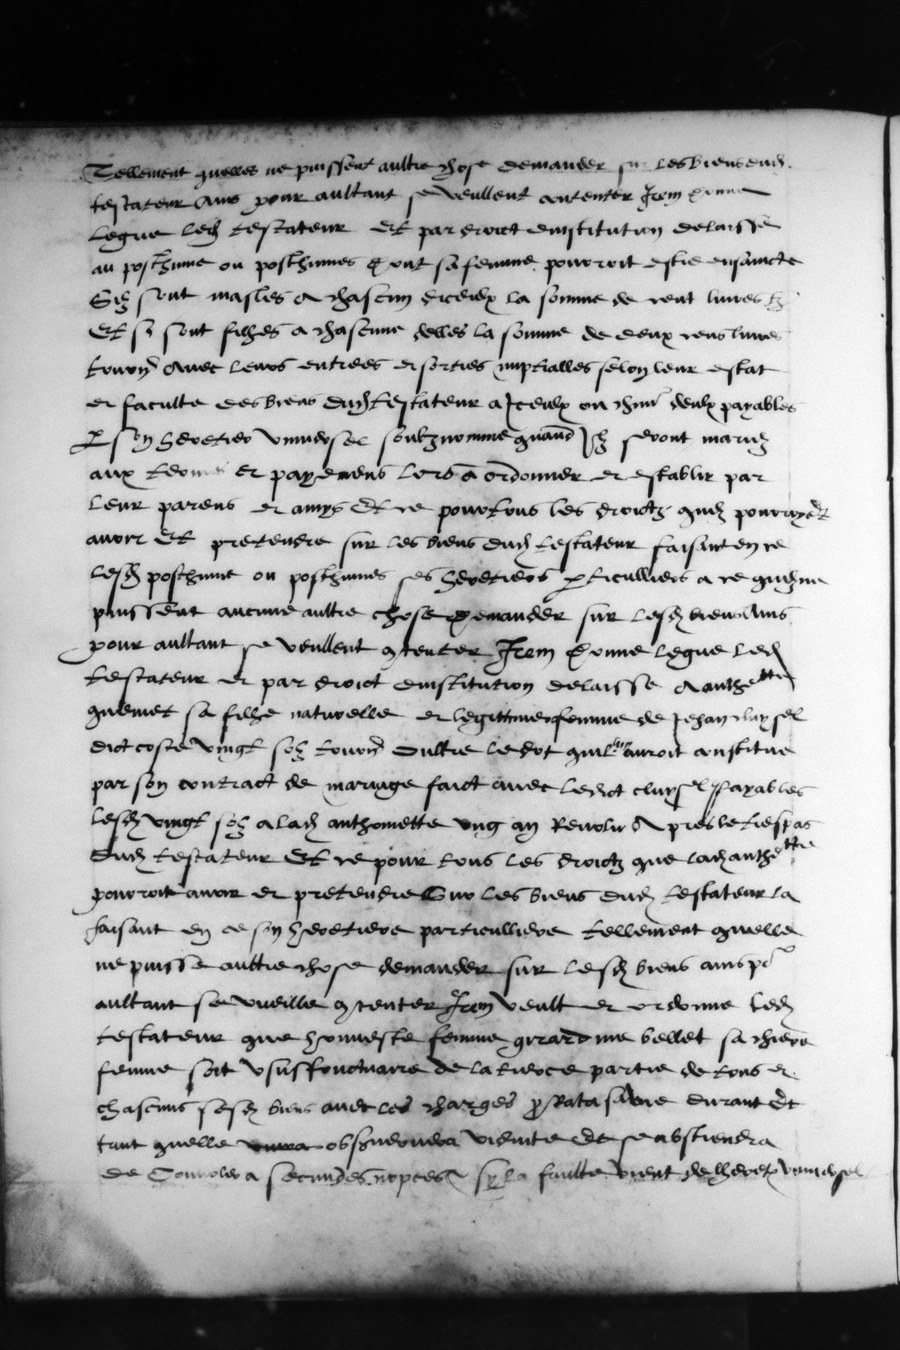 Tellement quelles ne puissent aultre chose demander sur les biens dud.
testateur Ains pour aultant se veullent contenter Item donne
legue led testateur Et par droict dinstitution delaisse
au posthume ou posthumes dont sa femme pourroit estre ensaincte
Silz sont masles a chascun diceulx la somme de cent livres tz
Et sy sont filhes a chascune delles la somme de deux cens livres
tourn avec leurs entrees et sorties nuptialles selon leur estat
et faculte des biens dud testateur a Iceulx ou chun deulx payables
p son heretier universel soubznomme quand Ilz seront mariez
aux termes et payemens lors a ordonner et establir par
leur parens et amys Et ce pour tous les droictz quilz pourroyent
avoir Et pretendre sur les biens dud testateur faisant en ce
lesd posthume ou posthumes ses heretiers pticulliers a ce quilz ne
puissent aucune aultre chose demander sur lesd biens Ains
pour aultant se veullent contenter Item donne legue led
testateur et par droict dinstitution delaisse A anthette
sa filhe naturelle et legittime femme de Jehan cluysel
dict coste vingt solz tourn oultre le dot quil luy auroit constitue
par son contract de mariage faict avec ledict cluysel payables
lesd vingt solz a lad anthomette ung an Revolu Apres le trespas
dud testateur Et ce pour tous les droictz que lad anthette
pourroit avoir et pretendre Sur les biens dud testateur la
faisant en ce son heretiere particulliere tellement quelle
ne puisse aultre chose demander sur lesd biens ains pr
aultant se vueille contenter Item veult et ordonne led
testateur que honneste femme girardine bellet sa chiere
femme soit Usufructuaire de la tierce partie de tous et
chascuns sesd biens avec les charges pro Rata sa vie durant Et
tant quelle observera viduite Et se abstiendra
de Convoler a secundes nopces sy la faulte vient de lheretr universel